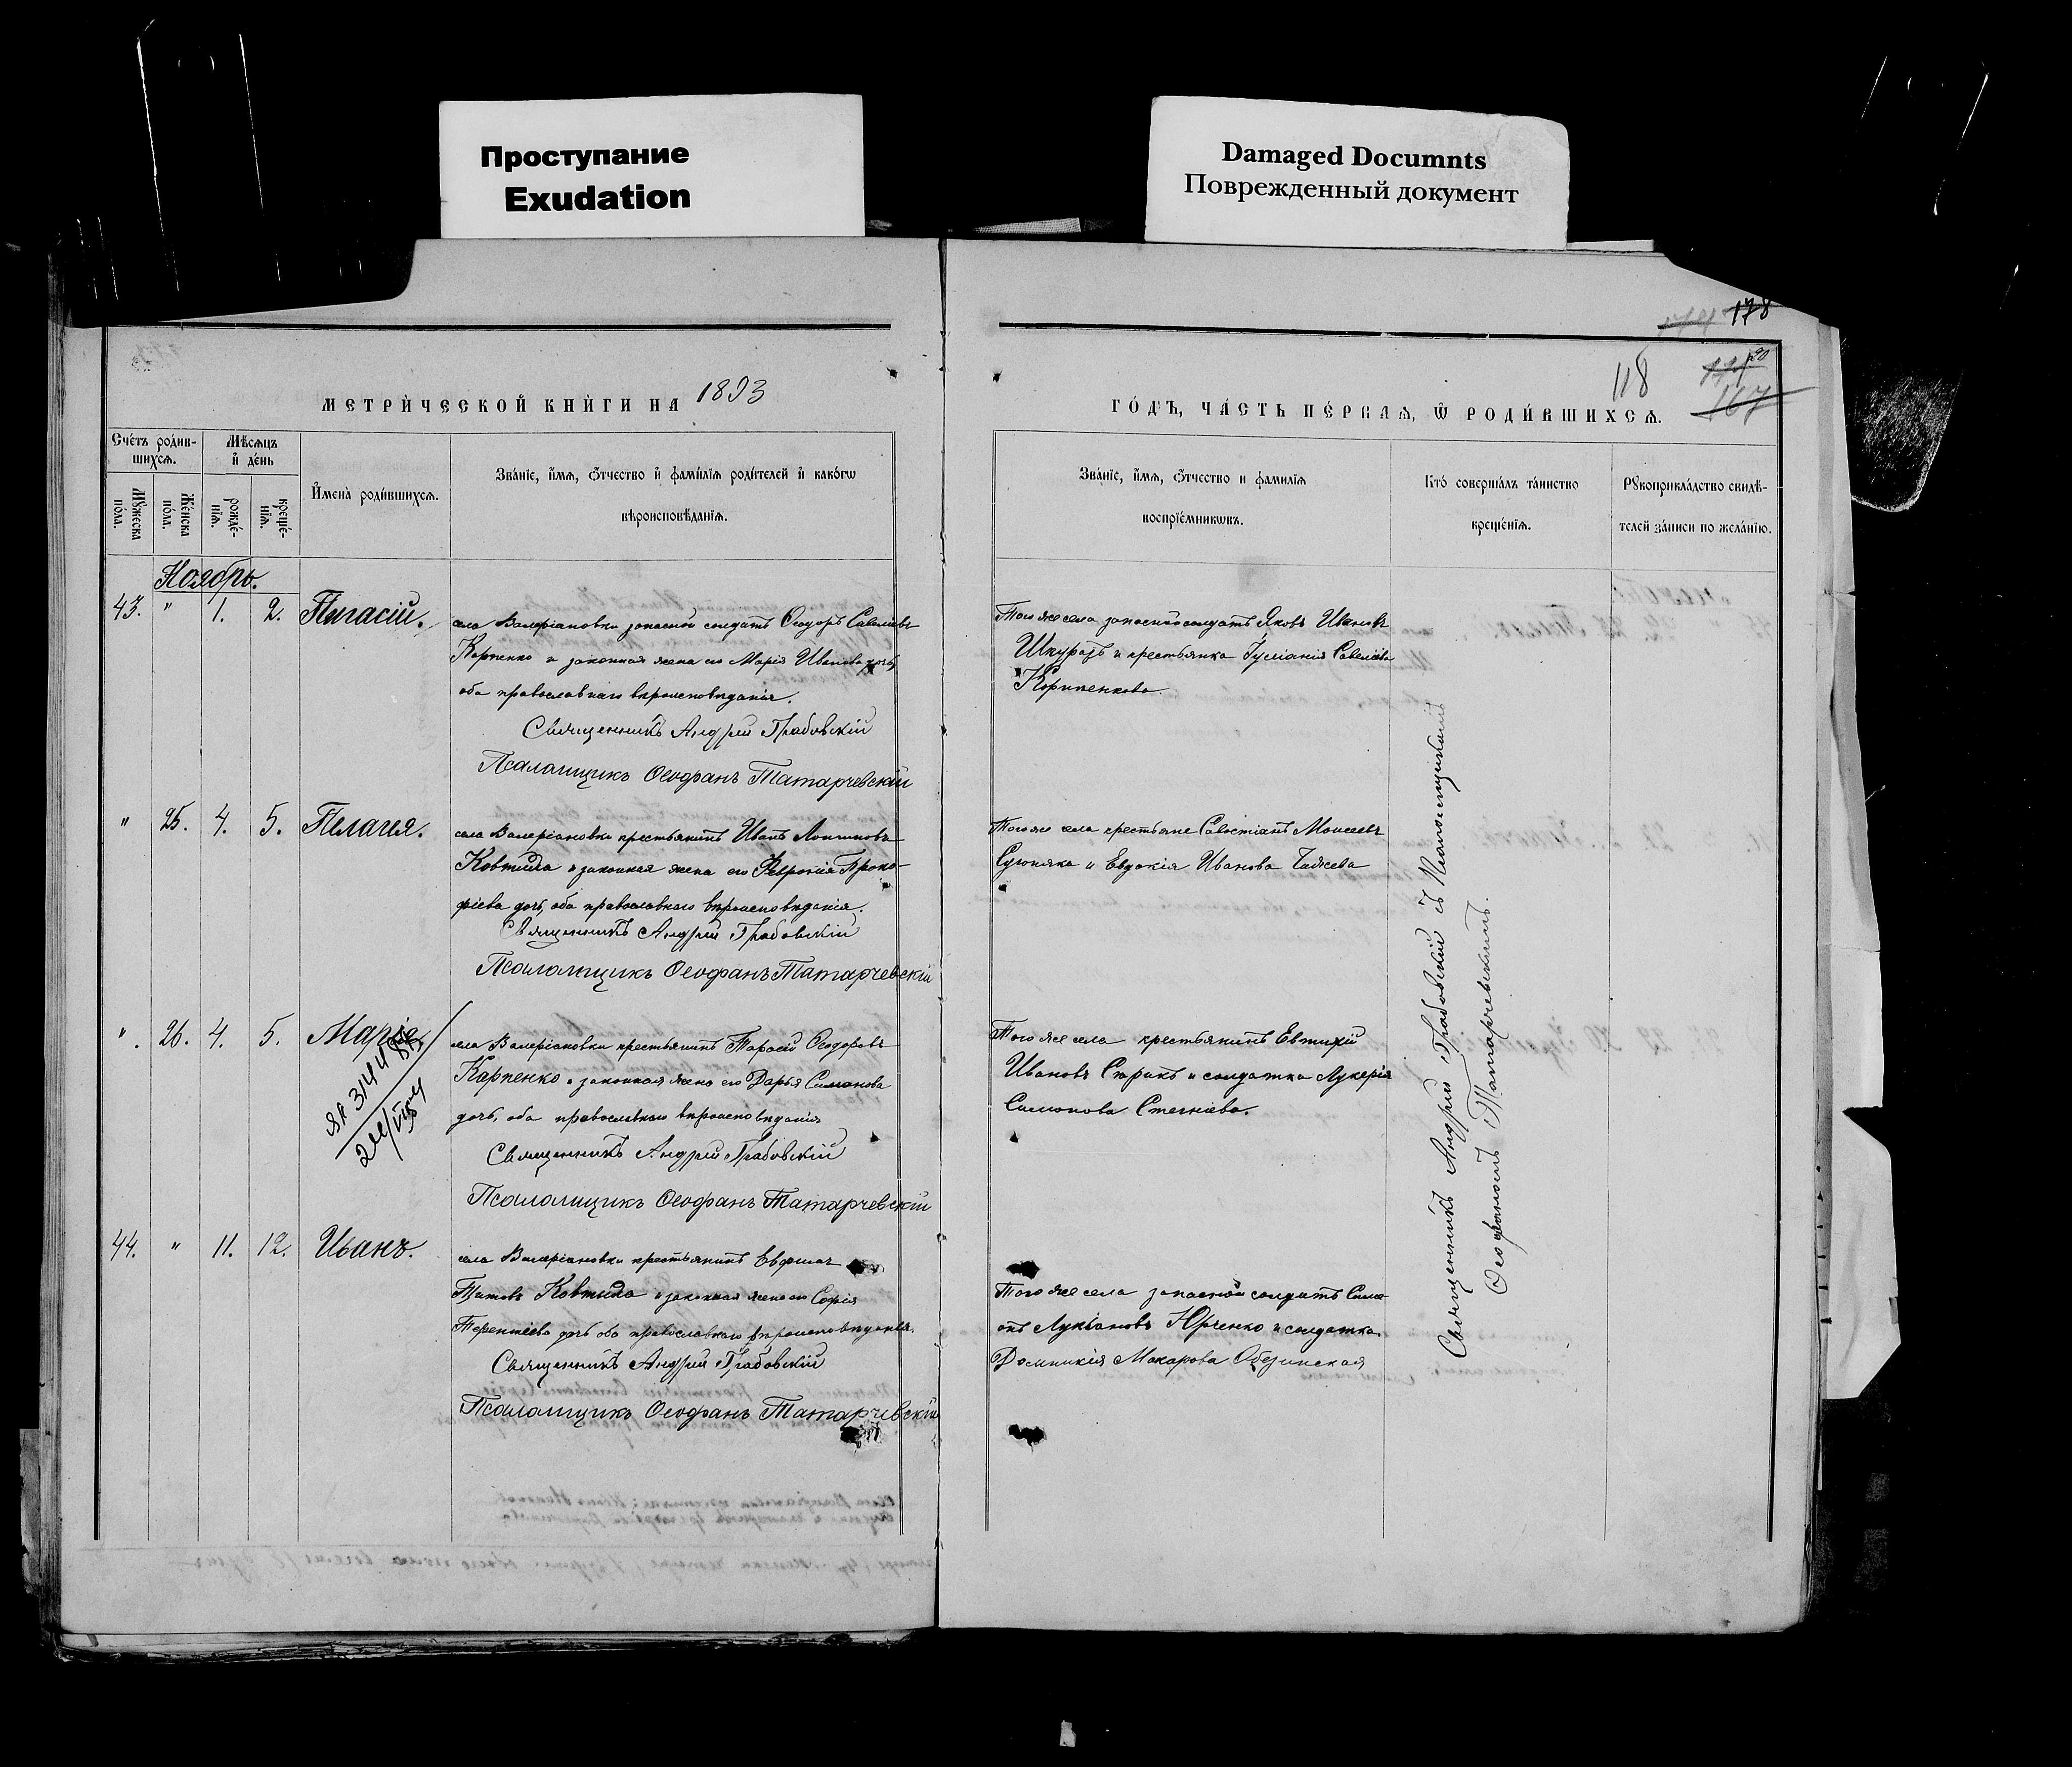 Проступание
Exudation
Damaged Documnts
Поврежденный документ
178
118
167
МЕТРИ́ЧЕСКОЙ КНИ́ГИ НА 1893
ГО́ДЪ, ЧА́СТЬ ПЕ́РВАѦ, Ѽ РОДИ́ВШИХСѦ.
Сче́тъ роди́в-
шихсѧ.
Мѣ́сѧцъ
и҆ де́нь
Мꙋжеска
по́ла.
Же́нска
по́ла.
рожде́-
нїѧ.
креще́-
нїѧ.
И҆мена̀ роди́вшихсѧ.
Зва́нїе, и҆́мѧ, ѻ҆́тчество и҆ фами́лїѧ роди́телей и҆ како́гѡ
вѣроисповѣ́данїѧ.
Зва́нїе, и҆́мѧ, ѻ҆́тчество и фами́лїѧ
воспрїе́мникѡвъ.
Кто̀ соверша́лъ та́инство
креще́нїѧ.
Рꙋкоприкла́дство свидѣ́-
телей за́писи по жела́нїю.
Ноябрь.
43. " 1. 2. Пигасій.
села Валеріановки запасной солдатъ Ѳеодоръ Савеліевъ
Карпенко и законная жена его Марія Иванова дочь,
оба православнаго вѣроисповѣданія.
Священникъ Андрей Грабовскій
Псаломщикъ Ѳеофанъ Татарчевскій
Того же села запасной солдатъ Яковъ Ивановъ
Шкуратъ и крестьянка Іуліанія Савеліева
" 25. 4. 5. Пелагія.
села Валеріановки крестьянинъ Иванъ Логиновъ
Ковтила и законная жена его Феvронія Проко-
фіева дочь, оба православнаго вѣроисповѣданія.
Священникъ Андрей Грабовскій
Псаломщикъ Ѳеофанъ Татарчевскій
Того же села крестьяне Савостіанъ Моисеевъ
и Евдокія Иванова
". 26. 4. 5. Марія
села Валеріановки крестьянинъ Тарасій Ѳеодоровъ
Карпенко и законная жена его Дарья Симонова
дочь, оба православнаго вѣроисповѣданія
Священникъ Андрей Грабовскій
Псаломщикъ Ѳеофанъ Татарчевскій
Того же села крестьянинъ Евтихій
Ивановъ Сюрикъ и солдатка Лукерія
Симонова Стегніева.
44. " 11. 12. Иванъ.
села Валеріановки крестьянинъ
Титовъ Ковтила и законная жена его Софія
Терентіева дочь оба православнаго вѣроисповѣданія.
Священникъ Андрей Грабовскій
Псаломщикъ Ѳеофанъ Татарчевскій
Того же села запасной солдатъ Симе-
онъ Лукіановъ Юрченко и солдатка
Домникія Макарова
Священникъ Андрей Грабовскій съ Псаломщикомъ
Ѳеофаномъ Татарчевскимъ.